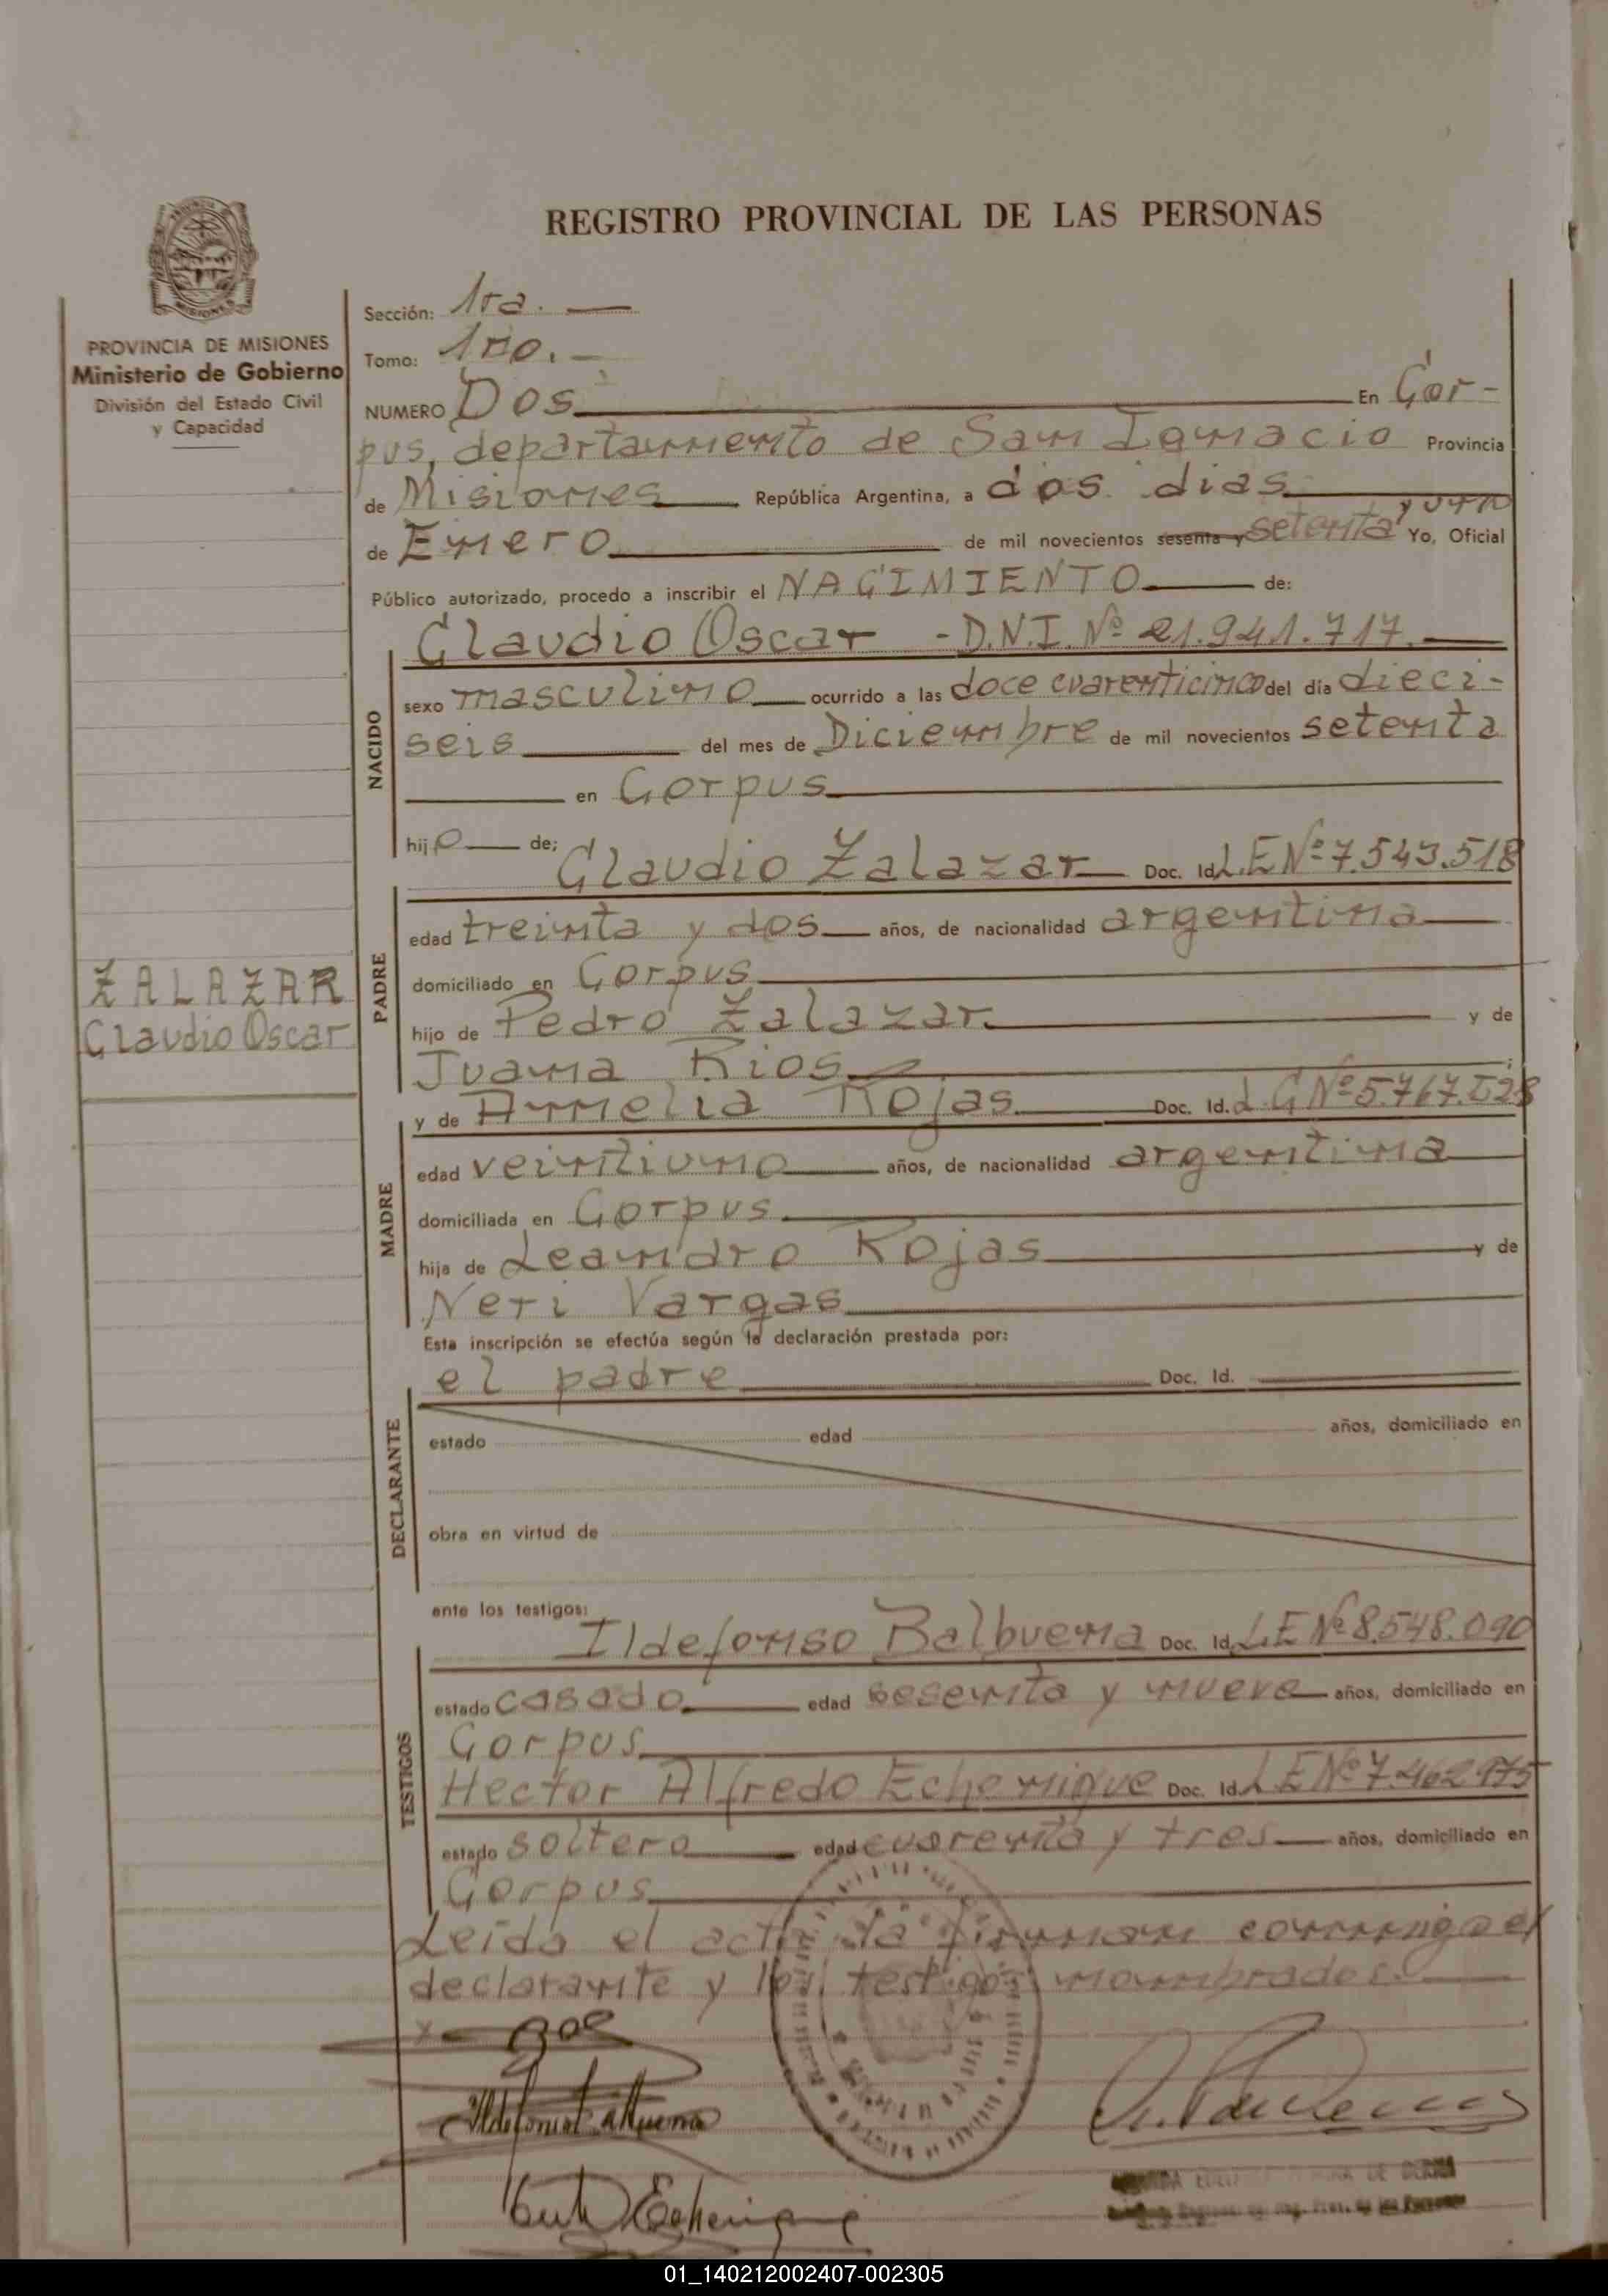 REGISTRO PROVINCIAL DE LAS PERSONAS
PROVINCIA DE MISIONES
Ministerio de Gobierno
División del Estado Civil
y Capacidad
Sección: 1ra.
Tomo: 1ro.
NUMERO Dos En Cor-
pus, departamento de San Ignacio Provincia
de Misiones República Argentina, a dos dias
de Enero de mil novecientos sesenta y setenta y uno Yo, Oficial
Público autorizado, procedo a inscribir el NACIMIENTO de:
Claudio Oscar - D.N.I. Nº 21.941.717.
NACIDO
sexo masculino ocurrido a las doce cuarenticinco del día dieci-
seis del mes de Diciembre de mil novecientos setenta
en Corpus
hijo de;
Claudio Zalazar Doc. Id. L.E Nº 7.543.518
PADRE
edad treinta y dos años, de nacionalidad argentina
domiciliado en Corpus
ZALAZAR
Claudio Oscar
hijo de Pedro Zalazar y de
Juana Rios
y de Amelia Rojas Doc. Id. L.C Nº 5.767.528
MADRE
edad veintiuno años, de nacionalidad argentina
domiciliada en Corpus
hija de Leandro Rojas y de
Neri Vargas
Esta inscripción se efectúa según la declaración prestada por:
el padre Doc. Id.
DECLARANTE
estado edad años, domiciliado en
obra en virtud de
ante los testigos:
Ildefonso Balbuena Doc. Id. L.E Nº 8.548.090
TESTIGOS
estado casado edad sesenta y nueve años, domiciliado en
Corpus
Hector Alfredo Echenique Doc. Id. L.E Nº 7.462.975
estado soltero edad cuarenta y tres años, domiciliado en
Corpus
Leida el acta la firman conmigo el
declarante y los testigos nombrados.
01_140212002407-002305